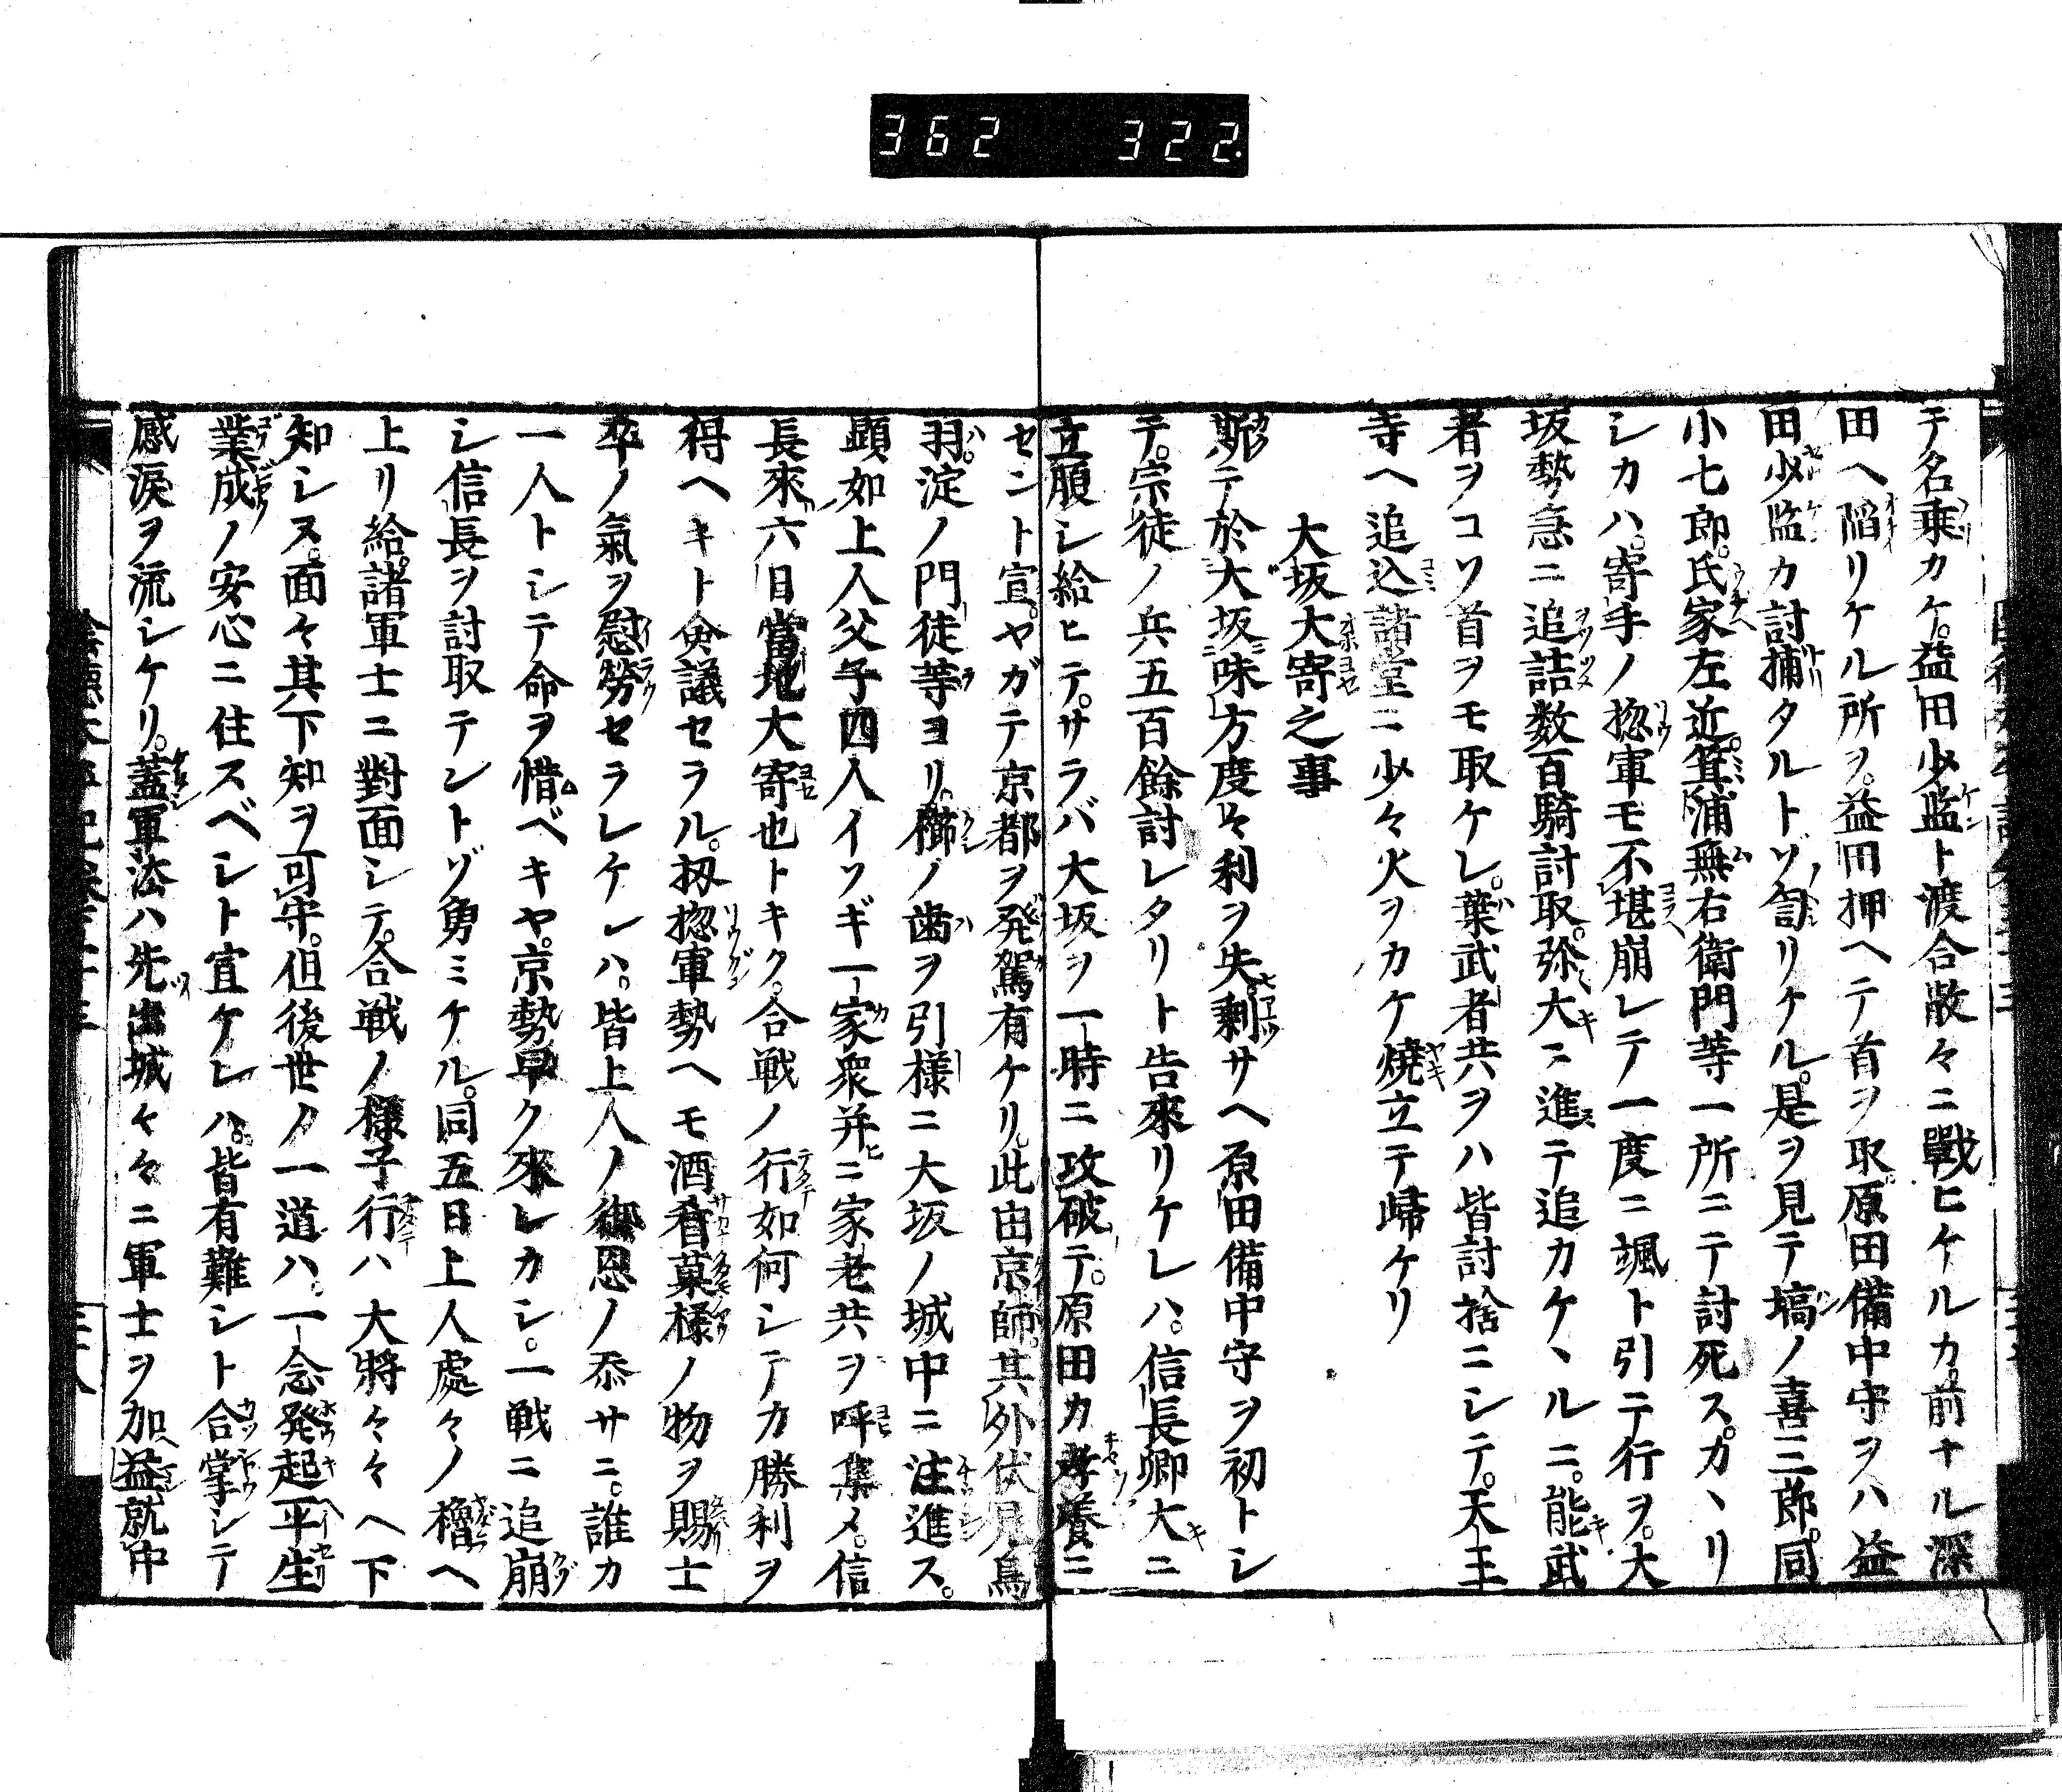 362 322.
テ名乗カケ。益田少監ト渡合散々ニ戰ヒケルカ。前ナル深
田ヘ陷リケル所ヲ。益田押ヘテ首ヲ取。原田備中守ヲハ益
田少監カ討捕タルトゾ匐リケル。是ヲ見テ塙ノ喜三郎。同
小七郎。氏家左近。箕浦無右衛門等一所ニテ討死ス。カヽリ
シカハ。寄手ノ惣軍モ不堪崩レテ一度ニ颯ト引テ行ヲ。大
坂勢急ニ追詰数百騎討取。弥大ニ進テ追カケヽルニ。能武
者ヲコソ首ヲモ取ケレ。葉武者共ヲハ皆討捨ニシテ。天王
寺ヘ追込諸堂ニ少々火ヲカケ燒立テ帰ケリ
大坂大寄之事
斯テ於大坂味方度々利ヲ失。剰サヘ原田備中守ヲ初トシ
テ。宗徒ノ兵五百餘討レタリト告來リケレハ。信長卿大ニ
立腹シ給ヒテ。サラバ大坂ヲ一時ニ攻破テ。原田カ孝養ニ
セント宣。ヤガテ京都ヲ発駕有ケリ。此由京師。其外伏見鳥
羽。淀ノ門徒等ヨリ。櫛ノ歯ヲ引様ニ大坂ノ城中ニ注進ス。
顕如上人父子四人イソギ一家衆并ニ家老共ヲ呼集メ。信
長來六日當地大寄也トキク。合戦ノ行如何シテカ勝利ヲ
得ヘキト僉議セラル。扨惣軍勢ヘモ酒肴菓様ノ物ヲ賜士
卒ノ氣ヲ慰勞セラレケレハ。皆上人ノ御恩ノ忝サニ。誰カ
一人トシテ命ヲ惜ベキヤ。京勢早ク來レカシ。一戦ニ追崩
シ信長ヲ討取テントゾ勇ミケル。同五日上人處々ノ櫓ヘ
上リ給。諸軍士ニ對面シテ。合戦ノ様子行ハ大將々々ヘ下
知シヌ。面々其下知ヲ可守。但後世ノ一道ハ。一念発起平生
業成ノ安心ニ住スベシト宣ケレハ。皆有難シト合掌シテ
感涙ヲ流シケリ。蓋軍法ハ先出城々々ニ軍士ヲ加益就中